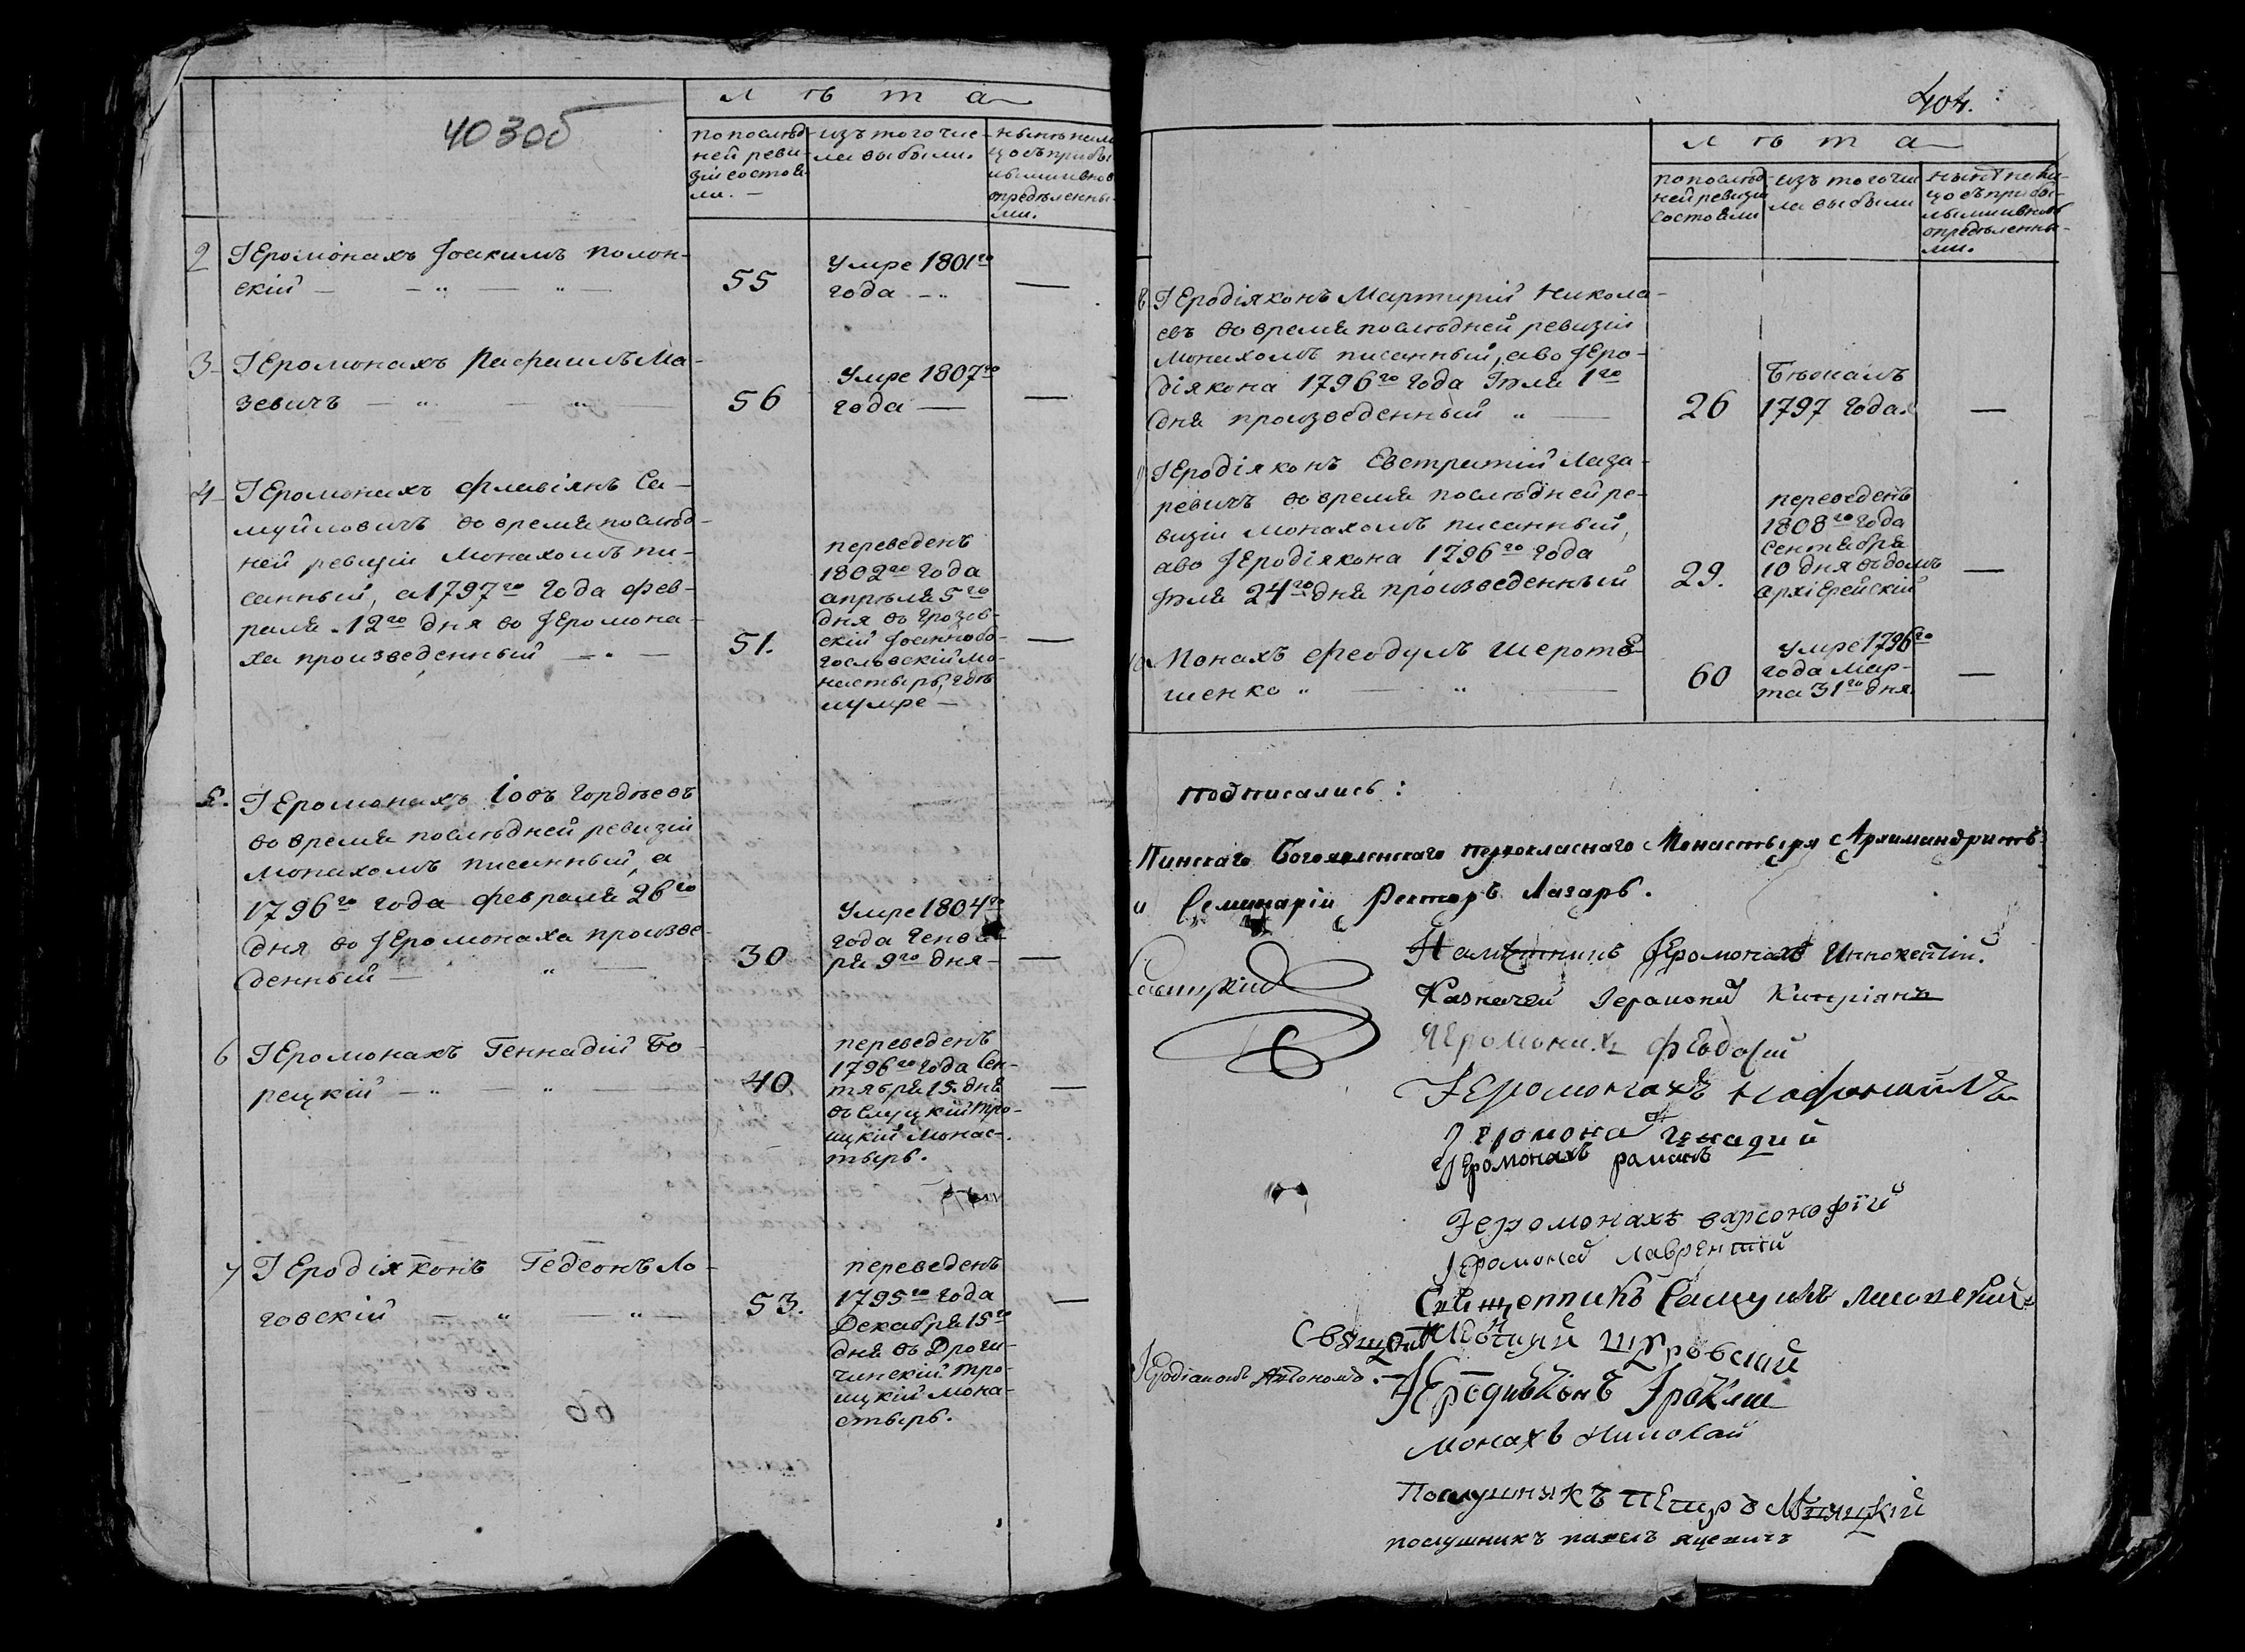 403об
Лѣта
по послѣд-
ней реви-
зіи состоя-
ли. —
изъ того чис-
ла выбыли.
нынѣ на ли-
цо съ прибы
лыми и вновь
опредѣленны-
ми.
2 Іеромонахъ Іоакимъ Полон-
скій — 55 — умре 1801го
года —
3 Іеромонахъ Рафаилъ Ма-
зевичъ — 56 — умре 1807го
года —
4 Іеромонахъ Флавіянъ Са-
муйловичъ во время послѣд-
ней ревизіи монахомъ пи-
санный, а 1797го года фев-
раля 12го дня во Іеромона-
ха произведенный — 51.
переведенъ
1802го года
апрѣля 5го
дня въ Грозов-
скій Іоанно бо-
гословскій мо-
настырь, гдѣ
и умре —
5. Іеромонахъ Іовъ Гордѣевъ
во время послѣдней ревизіи
монахомъ писанный, а
1796го года февраля 26го
дня во Іеромонаха произве-
денный — 30
умре 1804го
года Генва-
ря 9го дня —
6 Іеромонахъ Геннадій Бо-
рецкій — 40
переведенъ
1796го года Сен-
тября 15. дня
въ Слуцкій Тро-
ицкій Монас-
тырь.
7 Іеродіяконъ Гедеонъ Ло-
говскій — 53.
переведенъ
1795го года
Декабря 15го
дня въ Дроги-
чинскій Тро-
ицкій мона-
стырь.
404.
Лѣта
по послѣд-
ней ревизіи
состояли
изъ того чис
ла выбыли
нынѣ на ли-
цо съ прибы-
лыми и вновь
опредѣленны-
ми.
8 Іеродіяконъ Мартирій Никола-
евъ во время послѣдней ревизіи
монахомъ писанный, а во Іеро-
діякона 1796го года Іюля 1го
дня произведенный — 26
бѣжалъ
1797 года. —
9 Іеродіяконъ Евстратій Лаза-
ревичъ во время послѣдней ре-
визіи монахомъ писанный,
а во Іеродіякона 1796го года
Іюля 24го дня произведенный 29.
переведенъ
1808го года
Сентября
10 дня въ домъ
архіерейскій —
10 Монахъ Феодулъ Шеротѣ-
шенко — 60
умре 1796го
года Мар-
та 31го дня. —
подписались:
Пинскаго Богоявленскаго первокласнаго Монастыря Архимандритъ
и Семинаріи Ректоръ Лазарь.
Савицкій
Намѣстникъ Іеромонахъ Иннокентій.
Казначей Іеромонахъ Кипріянъ
Іеромонахъ Феодосій
Іеромонахъ
Іеромонахъ Генадий
Іеромонахъ романъ
Іеромонахъ варсонофій
Іеромонахъ лаврентій
Священникъ Самуилъ
Священникъ
Іеродіаконъ Автономъ.
Іеродіаконъ Іраклій
монахъ Николай
Послушникъ Петръ
послушникъ павелъ яцевичъ